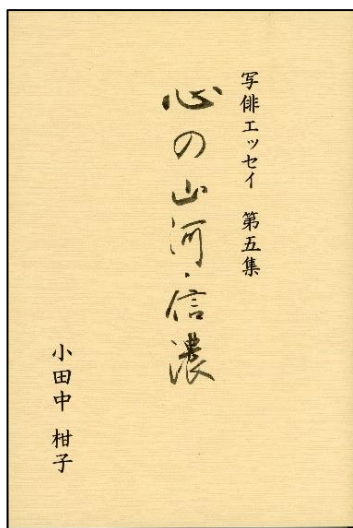 写俳エッセイ 第五集
心の山河・信濃
小田中 柑子